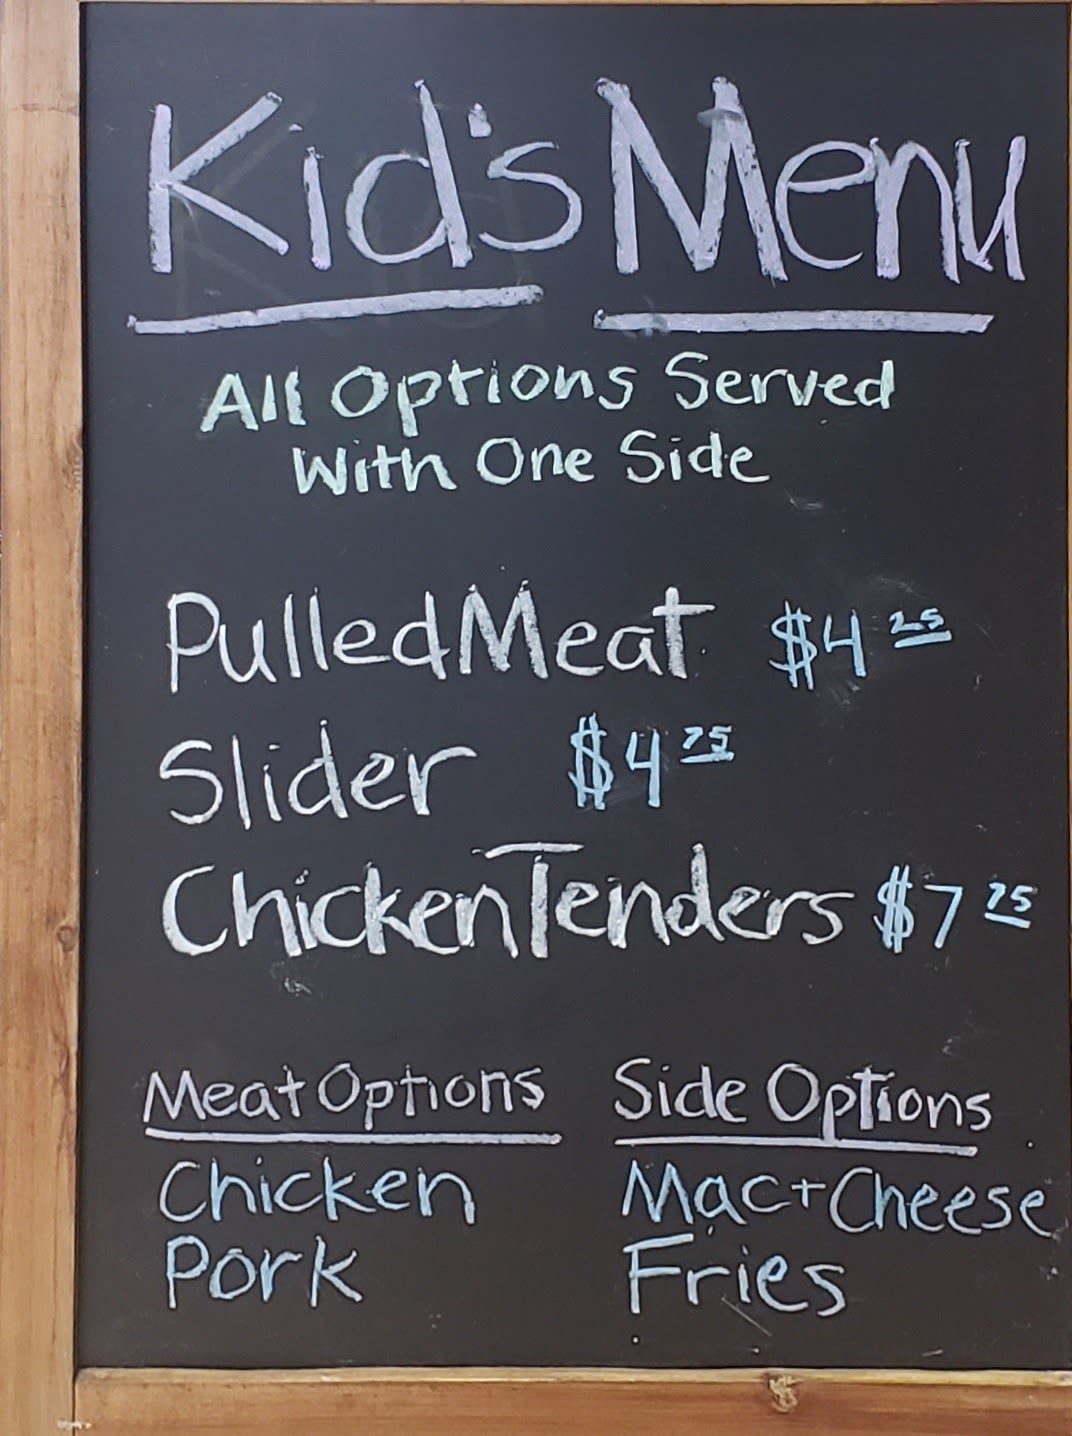 Kid's Menu
All Options Served
With One Side
Pulled Meat $4 25
Slider $4 75
Chicken Tenders $7 75
Meat Options
Chicken
Pork
Side Options
Mac + Cheese
Fries